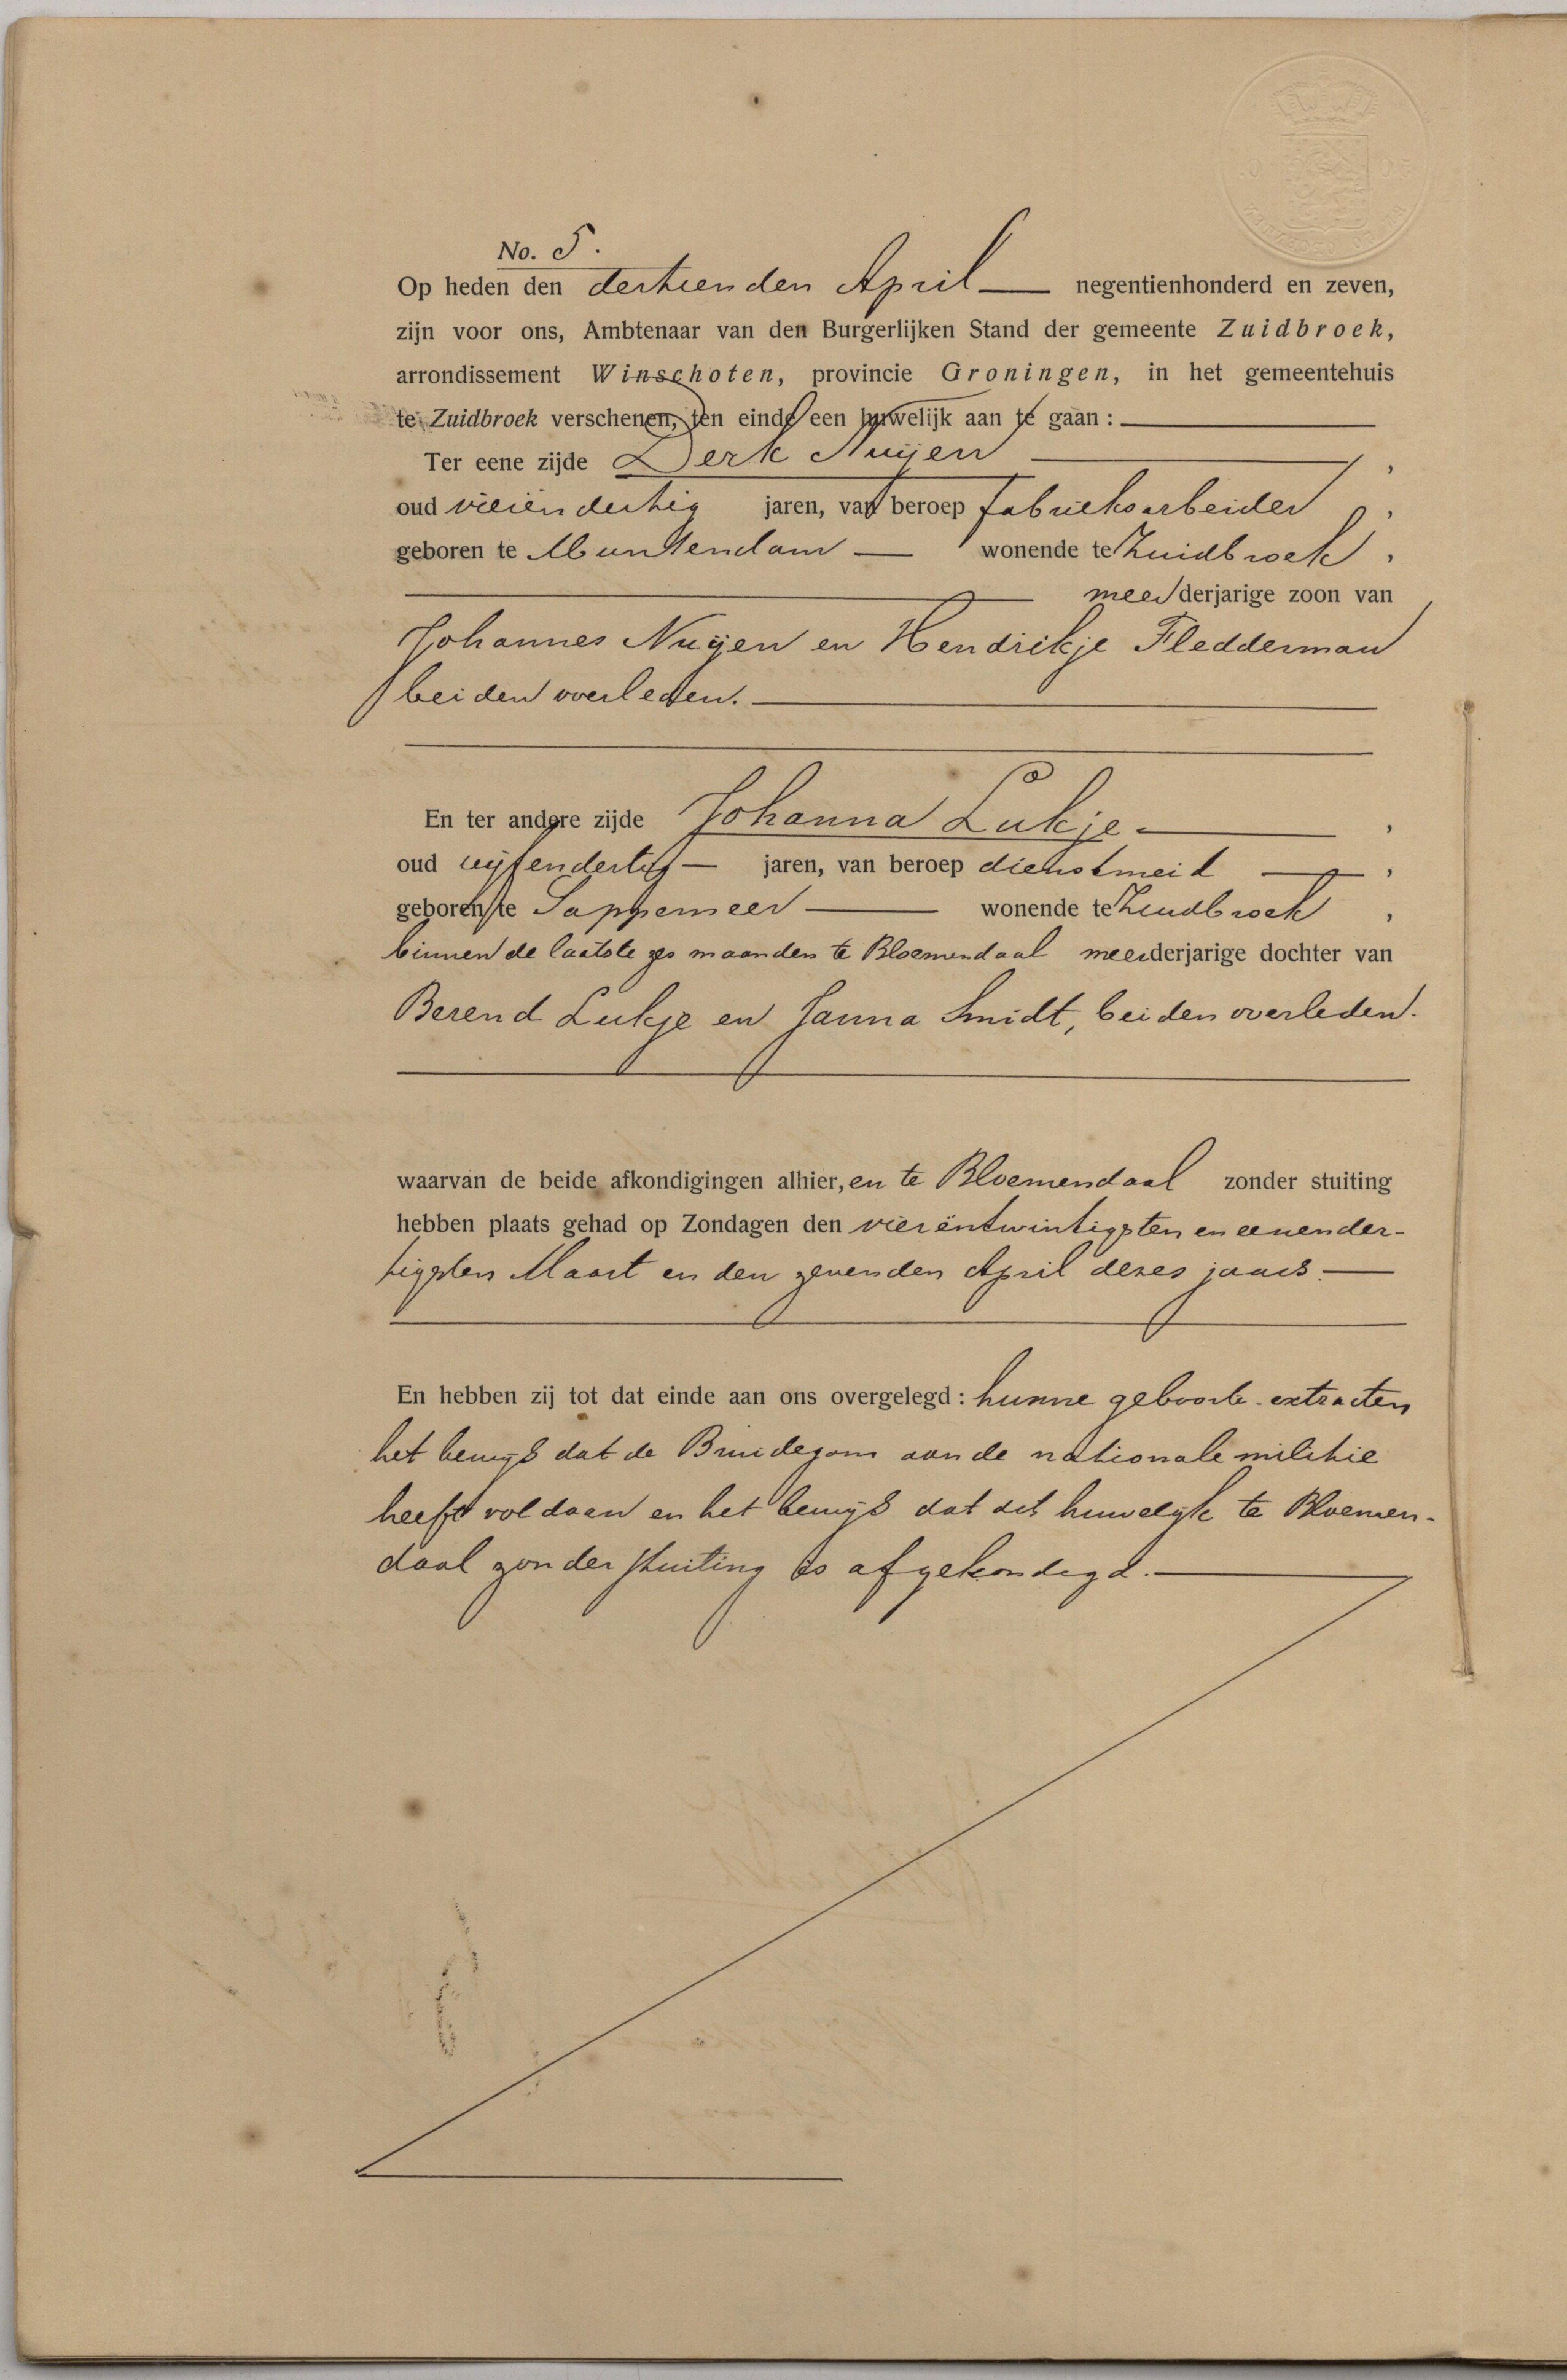 No. 5.
Op heden den dertienden April negentienhonderd en zeven,
zijn voor ons, Ambtenaar van den Burgerlijken Stand der gemeente Zuidbroek,
arrondissement Winschoten, provincie Groningen, in het gemeentehuis
te Zuidbroek verschenen, ten einde een huwelijk aan te gaan:
Ter eene zijde Derk Nuijen,
oud vierendertig jaren, van beroep fabrieksarbeider,
geboren te Muntendam wonende te Zuidbroek,
meerderjarige zoon van
Johannes Nuijen en Hendrikje Fledderman
beiden overleden.
En ter andere zijde Johanna Lukje,
oud vijfendertig jaren, van beroep dienstmeid,
geboren te Sappemeer wonende te Zuidbroek,
binnen de laatste zes maanden te Bloemendaal meerderjarige dochter van
Berend Lukje en Janna Smidt, beiden overleden.
waarvan de beide afkondigingen alhier, en te Bloemendaal zonder stuiting
hebben plaats gehad op Zondagen den vierentwintigsten en eenender-
tigsten Maart en den zevenden April dezes jaars.
En hebben zij tot dat einde aan ons overgelegd: hunne geboorte-extracten
het bewijs dat de Bruidegom aan de nationale militie
heeft voldaan en het bewijs dat dit huwelijk te Bloemen-
daal zonder stuiting is afgekondigd.